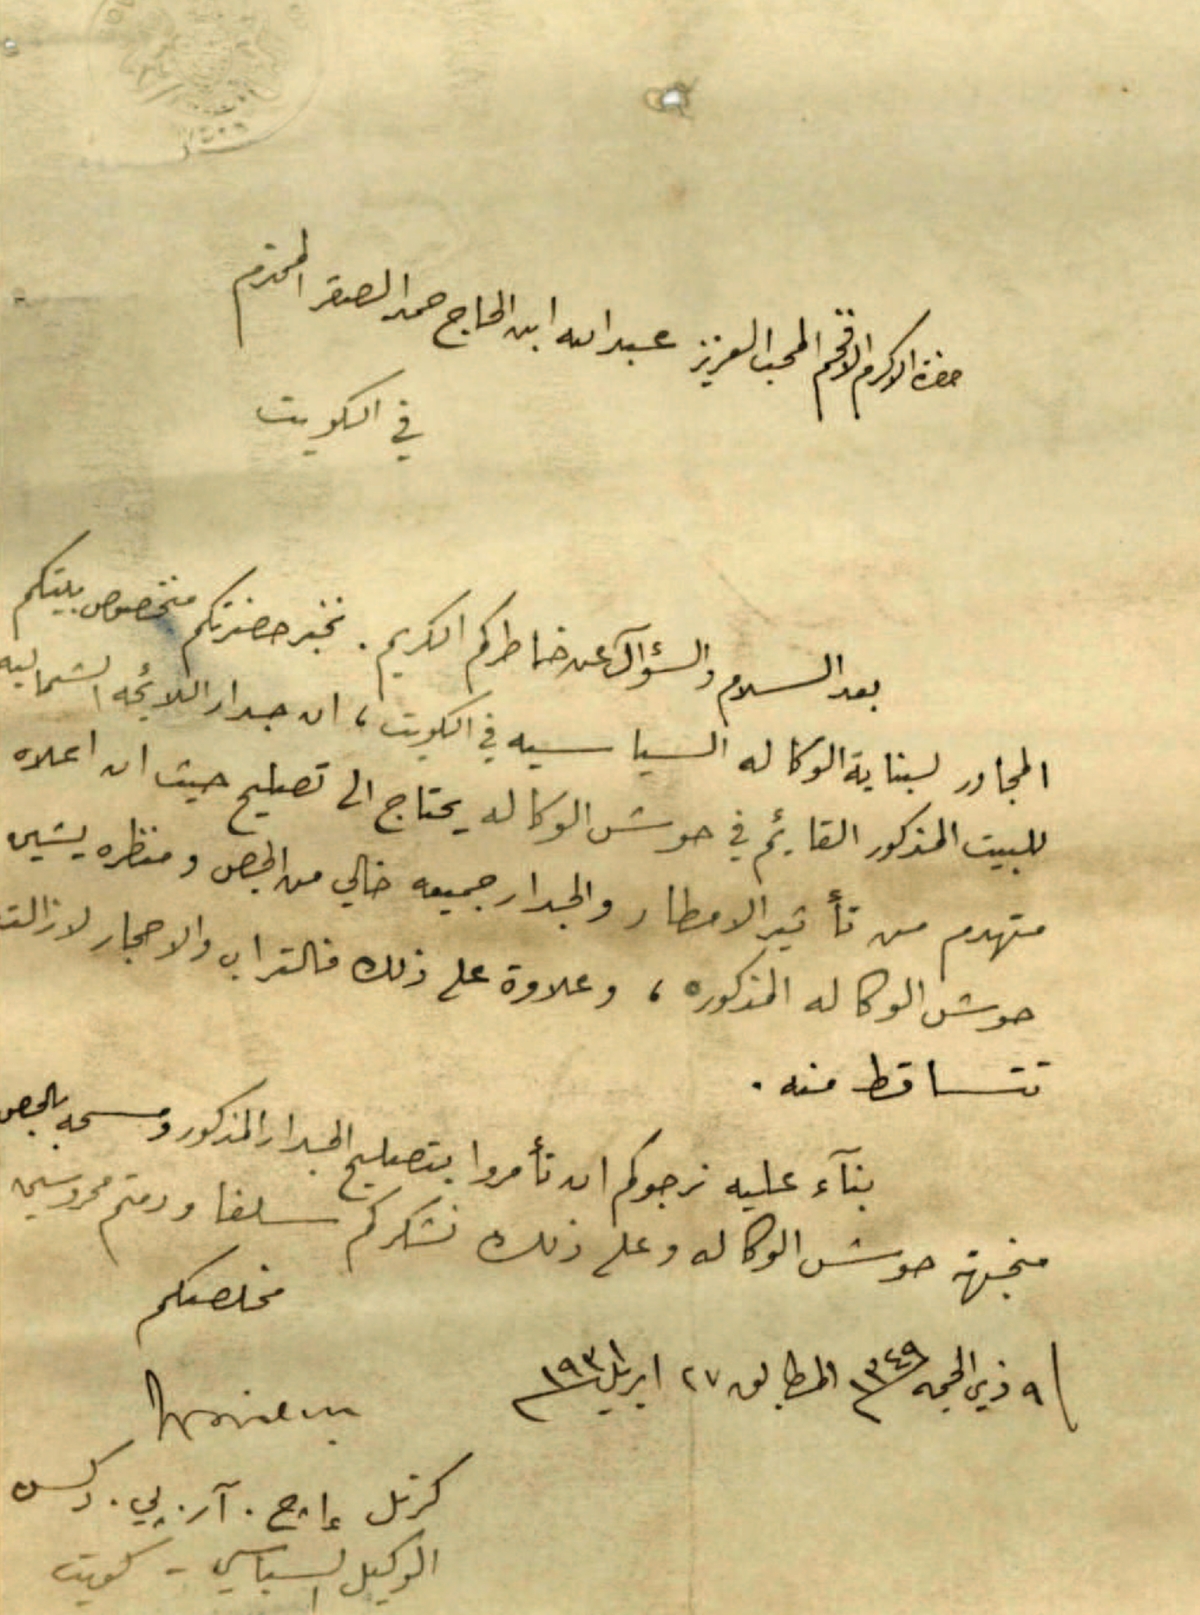 حضرة الاكرم الافخم المحب العزيز عبدالله ابن الحاج حمد الصقر المحترم
في الكويت
بعد السلام والسؤال عن خاطركم الكريم . نخبر حضرتكم منخصوص بيتكم
المجاور لبناية الوكاله السياسيه في الكويت ، ان جدار اللائجه الشماليه
للبيت المذكور القايم في حوش الوكاله يحتاج الى تصليح حيث ان اعلاه
متهدم من تأثير الامطار والجدار جميعه خالي من الجص ومنظره يشين
حوش الوكاله المذكوره ، وعلاوة على ذلك فالتراب والاحجار لازالت
تتساقط منه .
بنآء عليه نرجوكم ان تأمروا بتصليح الجدار المذكور ومسحه بالجص
منجهة حوش الوكاله وعلى ذلك نشكركم سلفا ودمتم محروسين
مخلصكم
٩ ذي الحجه ١٣٤٩ المطابق ٢٧ ابريل ١٩٣١
كرنل اچ . آر . پي . دكسن
الوكيل السياسي - كويت